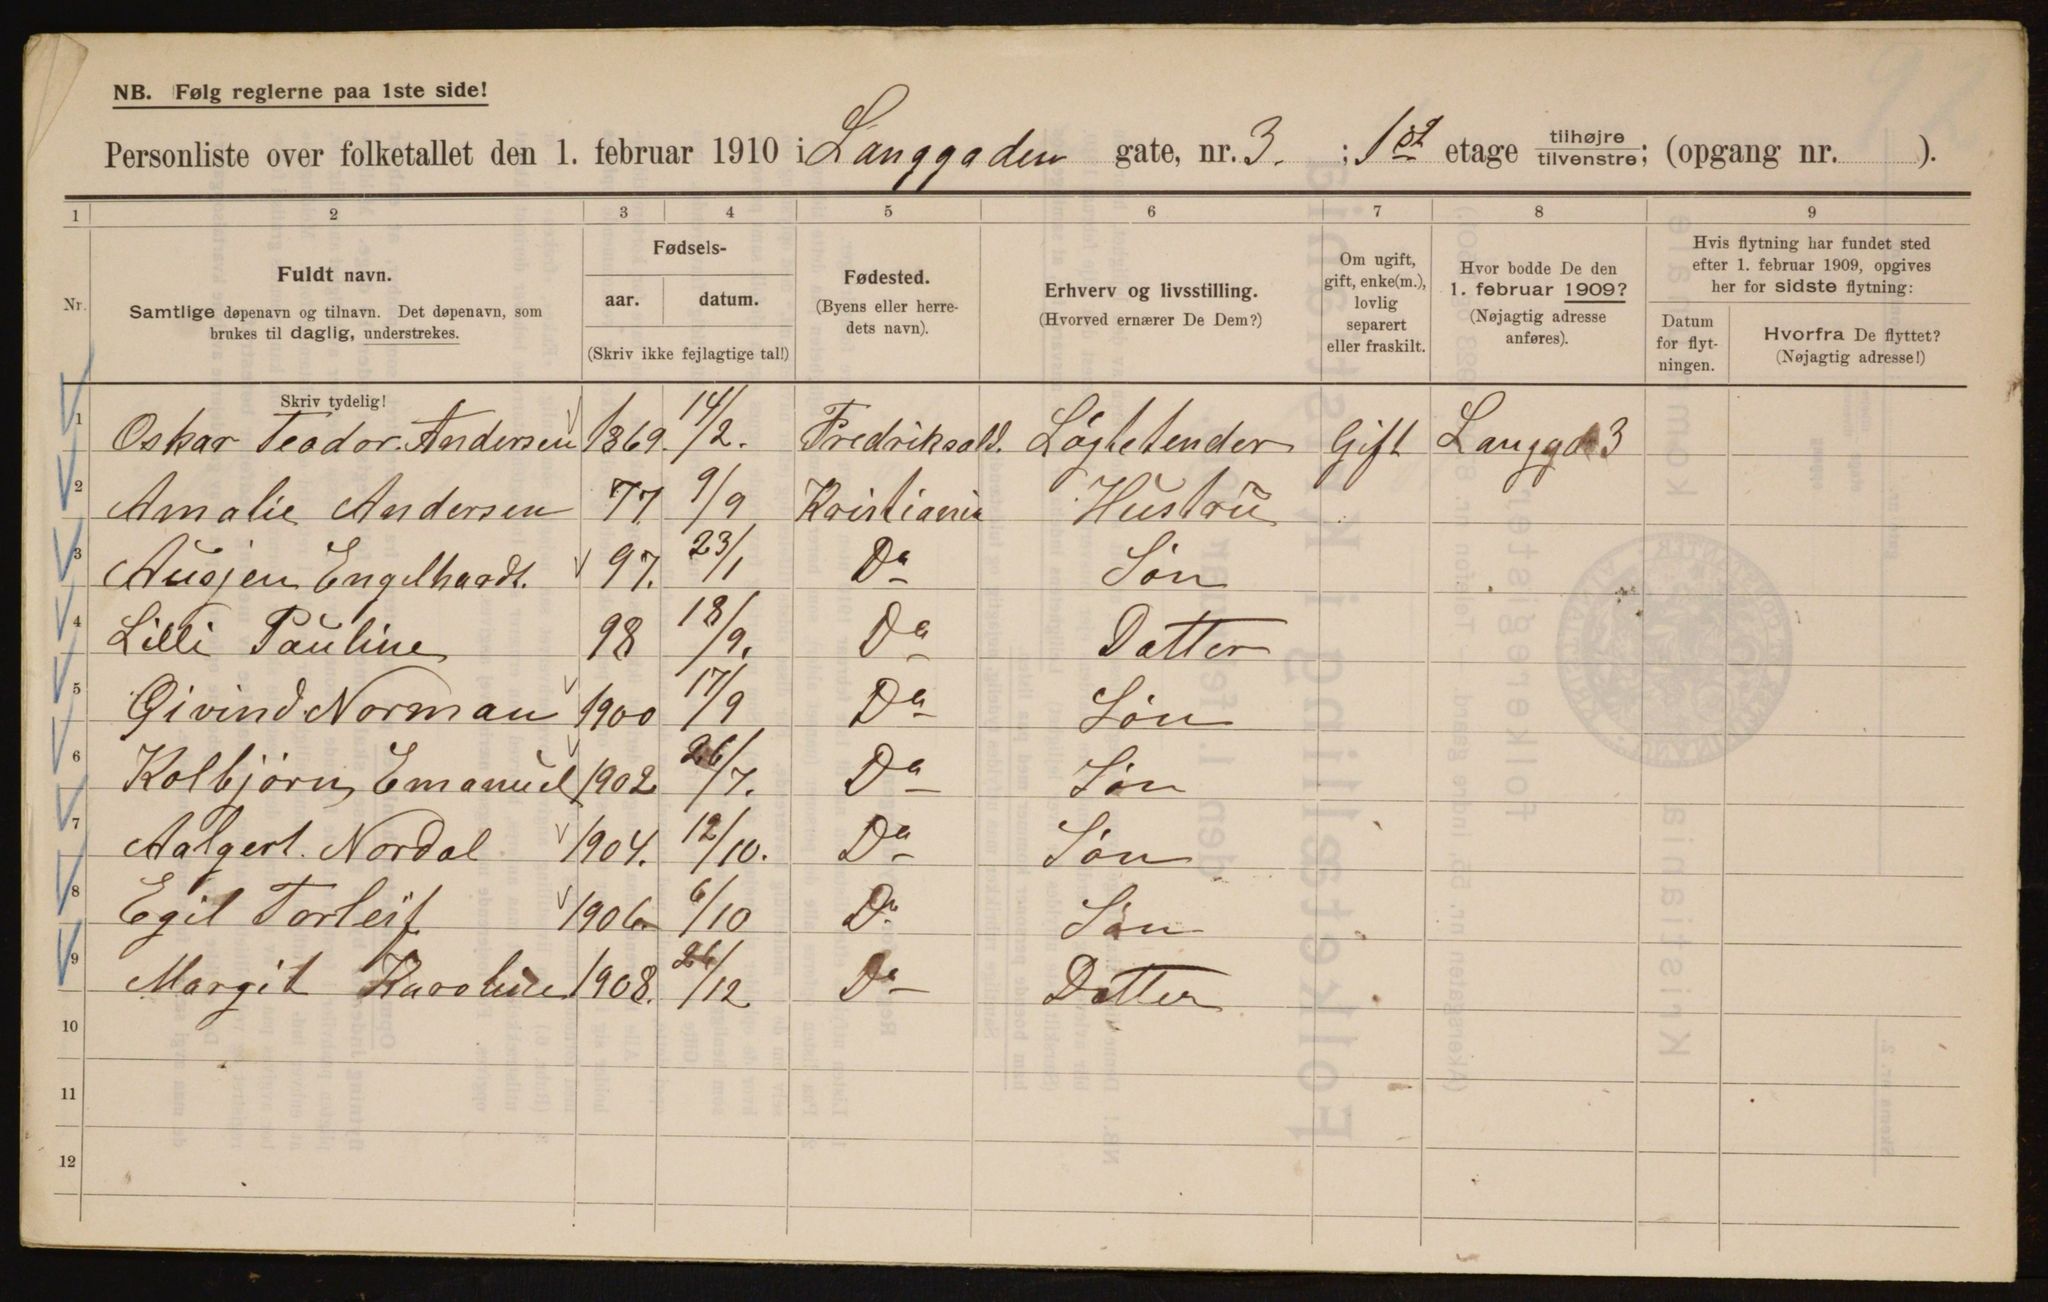 NB. Følg reglerne paa 1ste side!
Personliste over folketallet den 1. februar 1910 i Langgaden gate, nr. 3. ; 1st etage tilhøjre tilvenstre; (opgang nr. ).
1 2 3 4 5 6 7 8 9
Nr.
Fuldt navn.
Samtlige døpenavn og tilnavn. Det døpenavn, som
brukes til daglig, understrekes.
Fødsels-
aar. datum.
(Skriv ikke fejlagtige tal!)
Fødested.
(Byens eller herre-
dets navn).
Erhverv og livsstilling.
(Hvorved ernærer De Dem?)
Om ugift,
gift, enke(m.),
lovlig
separert
eller fraskilt.
Hvor bodde De den
1. februar 1909?
(Nøjagtig adresse
anføres).
Hvis flytning har fundet sted
efter 1. februar 1909, opgives
her for sidste flytning:
Datum
for flyt-
ningen.
Hvorfra De flyttet?
(Nøjagtig adresse!)
Skriv tydelig!
1 Oskar Teodor. Andersen 1869. 14/2. Fredriksald. Løgtetender Gift Langgd 3
2 Amalie Andersen 77. 9/9 Kristiania Hustru
3 Engelhardt. 97. 23/1 Do Søn
4 Lilli Pauline 98 18/9. Do Datter
5 Øivind Norman 1900 17/9 Do Søn
6 Kolbjørn Emanuel 1902 26/7. Do Søn
7 Nordal 1904. 12/10. Do Søn
8 Egil Torleif 1906 6/10 Do Søn
9 Margit Karoline 1908. 26/12 Do Datter
10
11
12